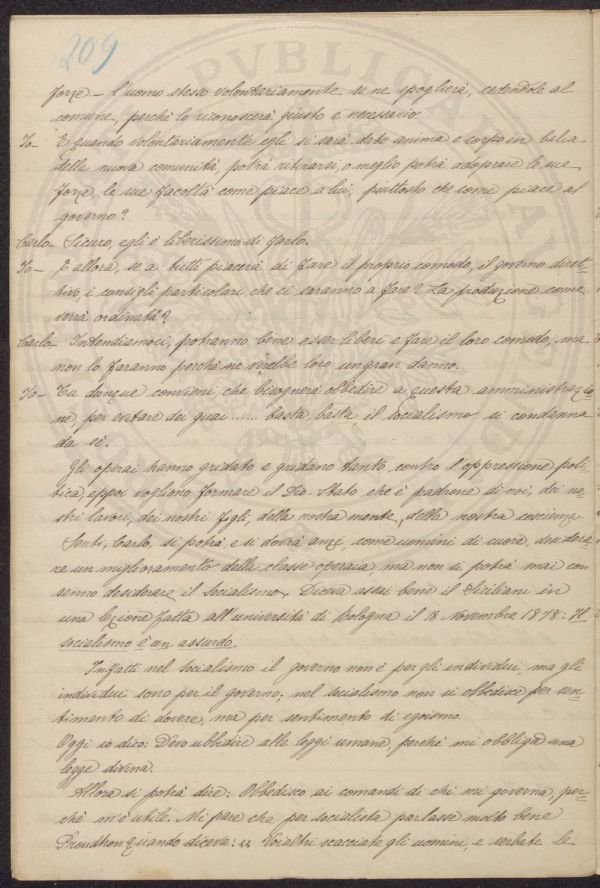 209
forze - l'uomo stesso volontariamente se ne spoglierà, cedendole al
comune, perchè lo riconoscerà giusto e necessario.
Io - E quando volontariamente egli si sarà dato anima e corpo in balia
della nuova comunità, potrà ritirarsi, o meglio potrà adoprare le sue
forze, le sue facoltà come piace a lui, piuttosto che come piace al
governo?
Carlo - Sicuro, egli è liberissimo di farlo.
Io - E allora, se a tutti piacerà di fare il proprio comodo, il governo diret-
tivo, i consigli particolari che ci staranno a fare? La produzione come
verrà ordinata?
Carlo - Intendiamoci, potranno bene esser liberi e fare il loro comodo, ma
non lo faranno perchè ne verrebbe loro un gran danno.
Io - Tu dunque convieni che bisognerà obbedire a questa amministrazio
ne per evitare dei guai ...... basta, basta, il socialismo si condanna
da sè.
Gli operai hanno gridato e gridano tanto contro l'oppressione poli-
tica, eppoi vogliono formare il Dio-Stato che è padrone di noi, dei no-
stri lavori, dei nostri figli, della nostra mente, della nostra coscienza
Senti, Carlo, si potrà e si dovrà anzi, come uomini di cuore, desidera-
re un miglioramento della classe operaia, ma non si potrà mai con
senno desiderare il Socialismo. Diceva assai bene il Siciliani in
una lezione fatta all'università di Bologna il Novembre 1878: Il
socialismo è un assurdo.
Infatti nel socialismo il governo non è per gli individui, ma gli
individui sono per il governo; nel socialismo non si obbedisce per sen-
timento di dovere, ma per sentimento di egoismo.
Oggi io dico: Devo ubbidire alle leggi umane, perchè mi obbliga una
legge divina.
Allora si potrà dire: Obbedisco ai comandi di chi mi governa, per-
chè m'è utile. Mi pare che per socialista parlasse molto bene
Proudhon quando diceva: „ Voialtri scacciate gli uomini, e serbate le